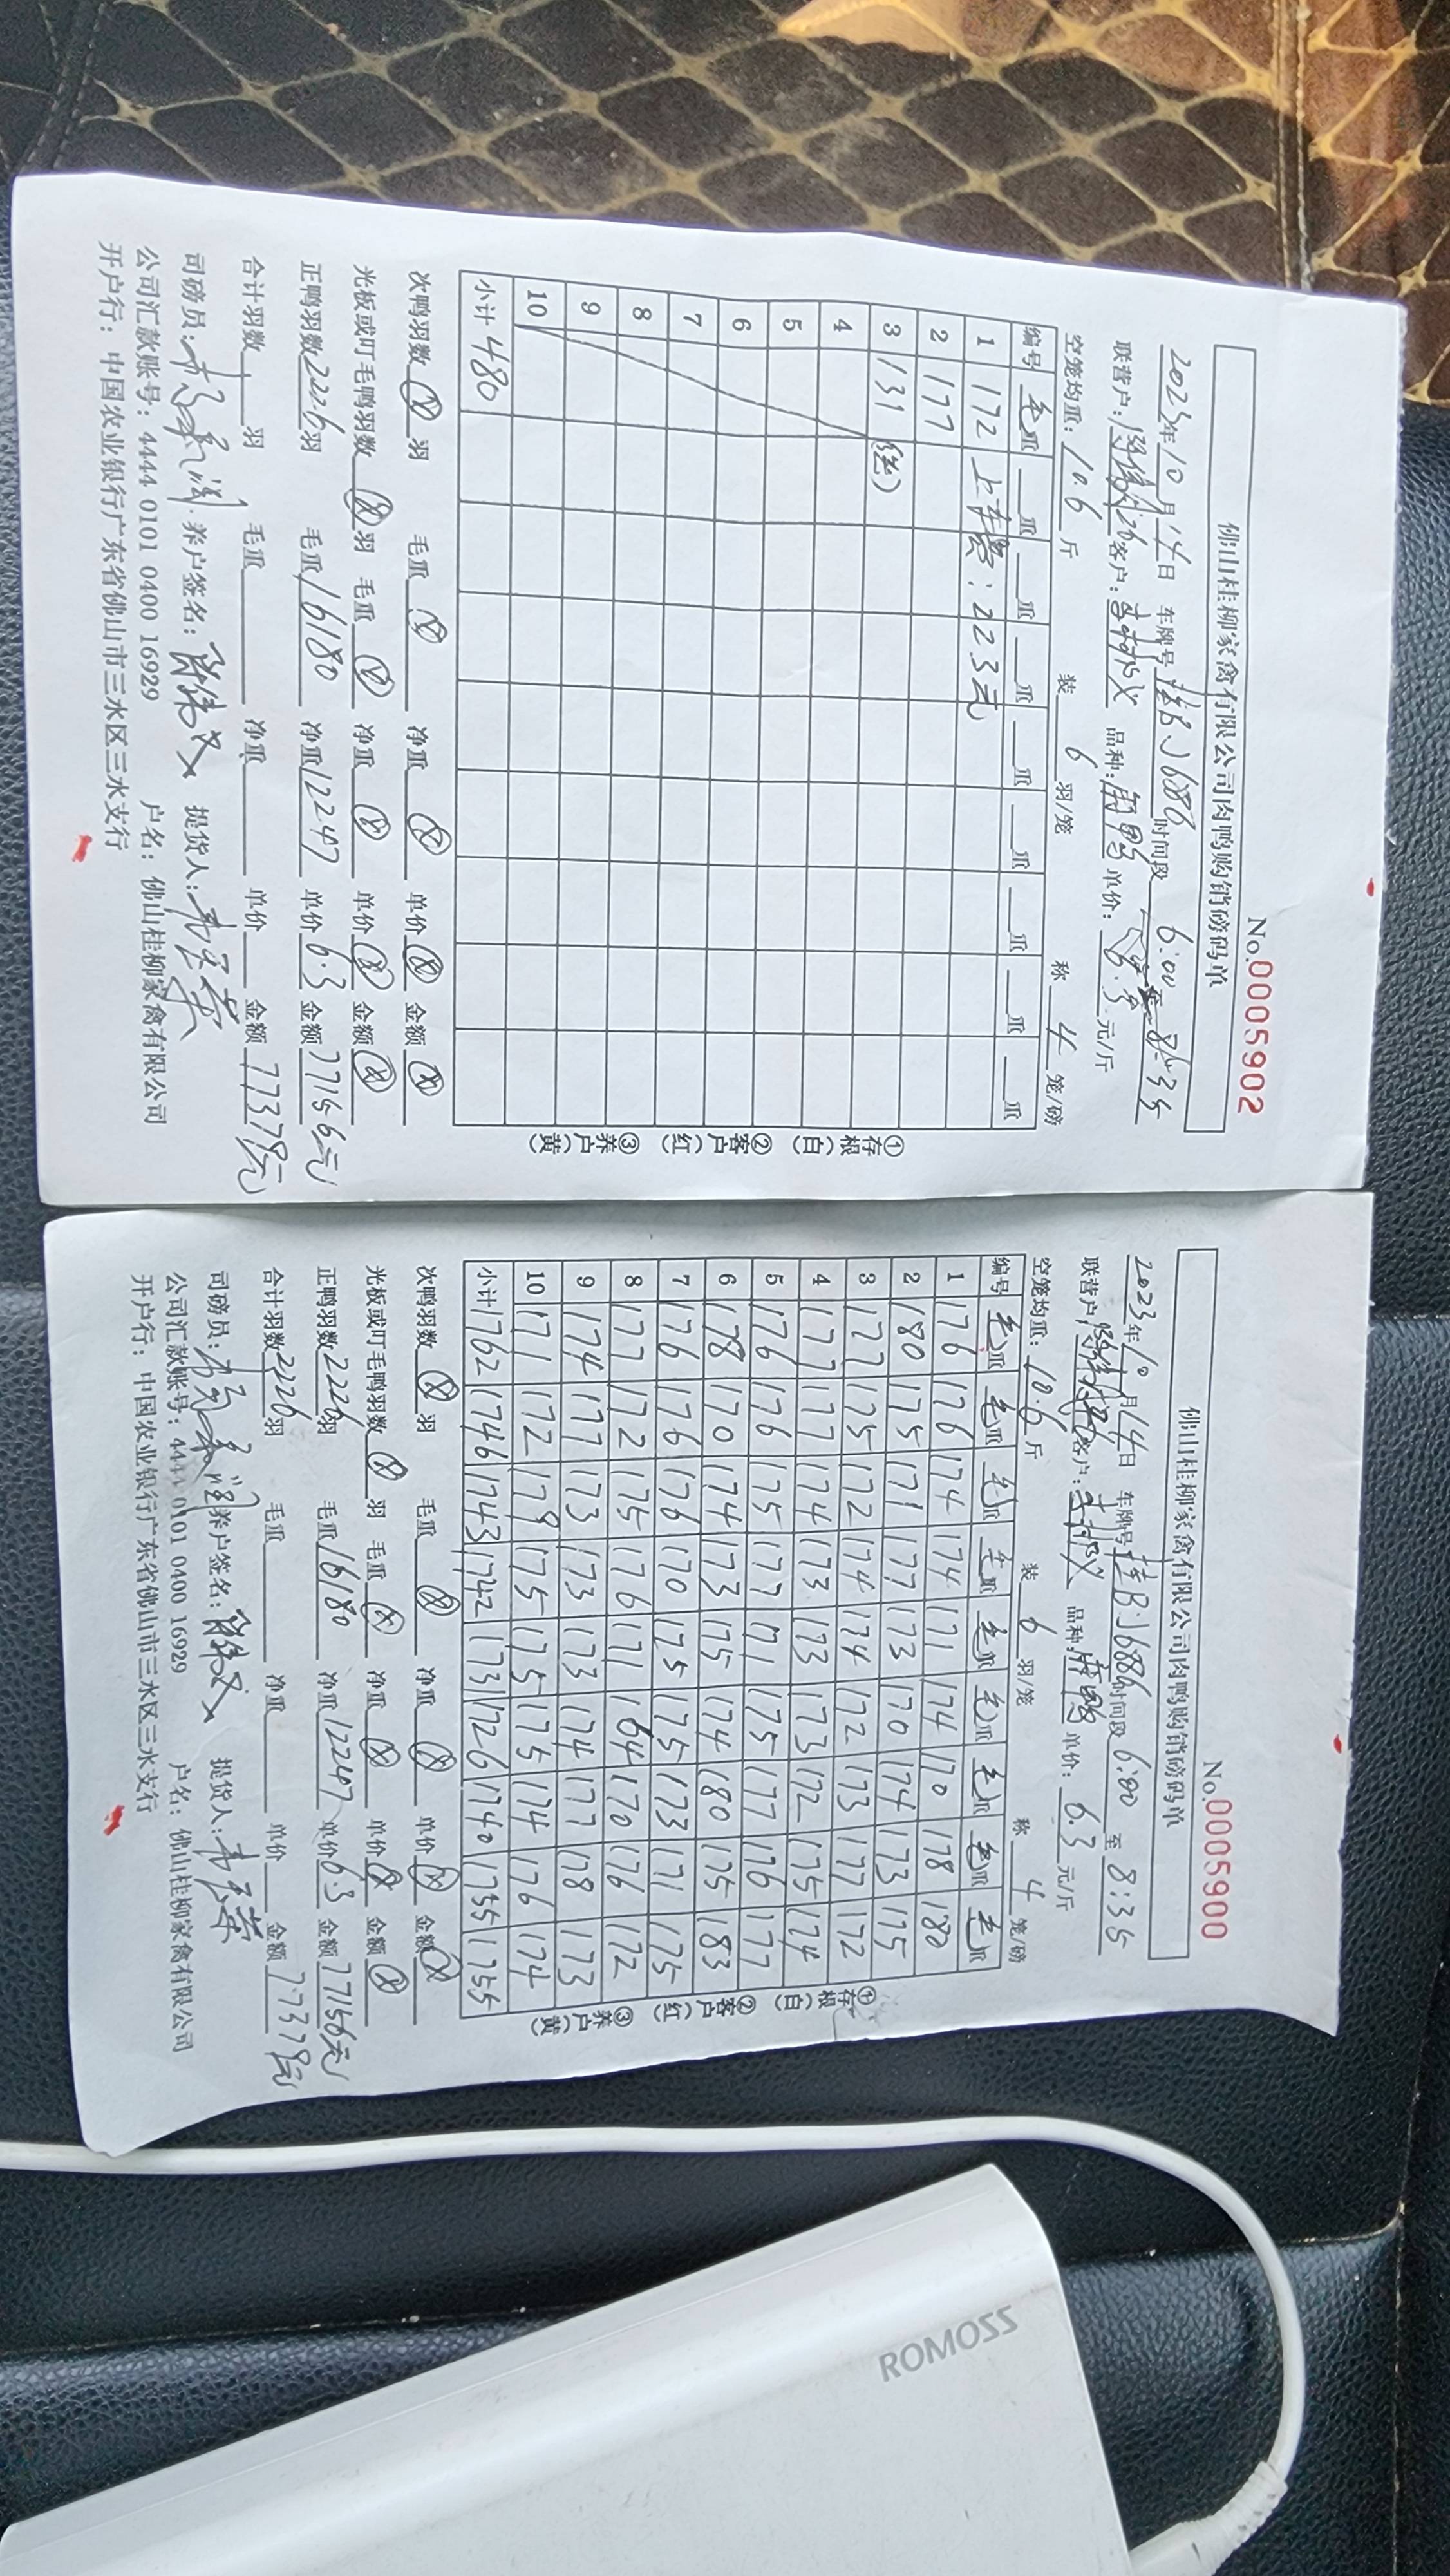 No.0005902
佛山桂柳家禽有限公司肉鸭购销磅码单
2023年10月14日 车牌号 桂BJ6886 时间段 6:00 至 8:35
联营户: 客户: 品种: 单价: 6.3 元/斤
空笼均重: 10.6 斤 装 6 羽/笼 称 4 笼/磅
编号 毛重 重 重 重 重 重 重 重 重
1 172 上车费:223元
2 177
3 131
4
5
6
7
8
9
10
小计 480
①存根(白) ②客户(红) ③养户(黄)
次鸭羽数 羽 毛重 净重 单价 金额
光板或叮毛鸭羽数 羽 毛重 净重 单价 金额
正鸭羽数 2226 羽 毛重 16180 净重 12247 单价 6.3 金额 77156元
合计羽数 羽 毛重 净重 单价 金额 77379元
司磅员: 养户签名: 提货人:
公司汇款账号: 4444 0101 0400 16929 户名: 佛山桂柳家禽有限公司
开户行: 中国农业银行广东省佛山市三水区三水支行
No.0005900
佛山桂柳家禽有限公司肉鸭购销磅码单
2023年10月14日 车牌号 桂BJ6886 时间段 6:00 至 8:35
联营户: 客户: 品种: 单价: 6.3 元/斤
空笼均重: 10.6 斤 装 6 羽/笼 称 4 笼/磅
编号 毛重 毛重 毛重 毛重 毛重 毛重 毛重 毛重 毛重
1 176 176 174 174 171 174 170 178 180
2 180 175 171 177 173 170 174 173 175
3 177 175 172 174 174 172 173 177 172
4 177 177 174 173 173 173 172 175 174
5 176 176 175 177 171 175 177 176 177
6 178 170 174 173 175 174 180 175 183
7 176 176 176 170 175 175 173 171 175
8 177 172 175 176 171 164 170 176 172
9 174 177 173 173 173 174 177 178 173
10 171 172 179 175 175 175 174 176 174
小计 1762 1746 1743 1742 1731 1726 1740 1755 1755
①存根(白) ②客户(红) ③养户(黄)
次鸭羽数 羽 毛重 净重 单价 金额
光板或叮毛鸭羽数 羽 毛重 净重 单价 金额
正鸭羽数 2226 羽 毛重 16180 净重 12247 单价 6.3 金额 77156元
合计羽数 2226 羽 毛重 净重 单价 金额 77379元
司磅员: 养户签名: 提货人:
公司汇款账号: 4444 0101 0400 16929 户名: 佛山桂柳家禽有限公司
开户行: 中国农业银行广东省佛山市三水区三水支行
ROMOSS